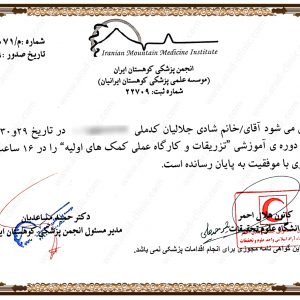 Iranian Mountain Medicine Institute
شماره :م/۰۷۱
تاریخ صدور :
انجمن پزشکی کوهستان ایران
(موسسه علمی پزشکی کوهستان ایرانیان)
شماره ثبت: ۲۲۷۰۹
می شود آقای/خانم شادی جلالیان کدملی در تاریخ ۲۹و۳۰
دوره ی آموزشی "تزریقات و کارگاه عملی کمک های اولیه" را در ۱۶ ساعت
ی با موفقیت به پایان رسانده است.
کانون هلال احمر
دانشگاه علوم تحقیقات
دکتر حمید مساعدیان
مدیر مسئول انجمن پزشکی کوهستان ایران
این گواهی نامه مجوزی برای انجام اقدامات پزشکی نمی باشد.